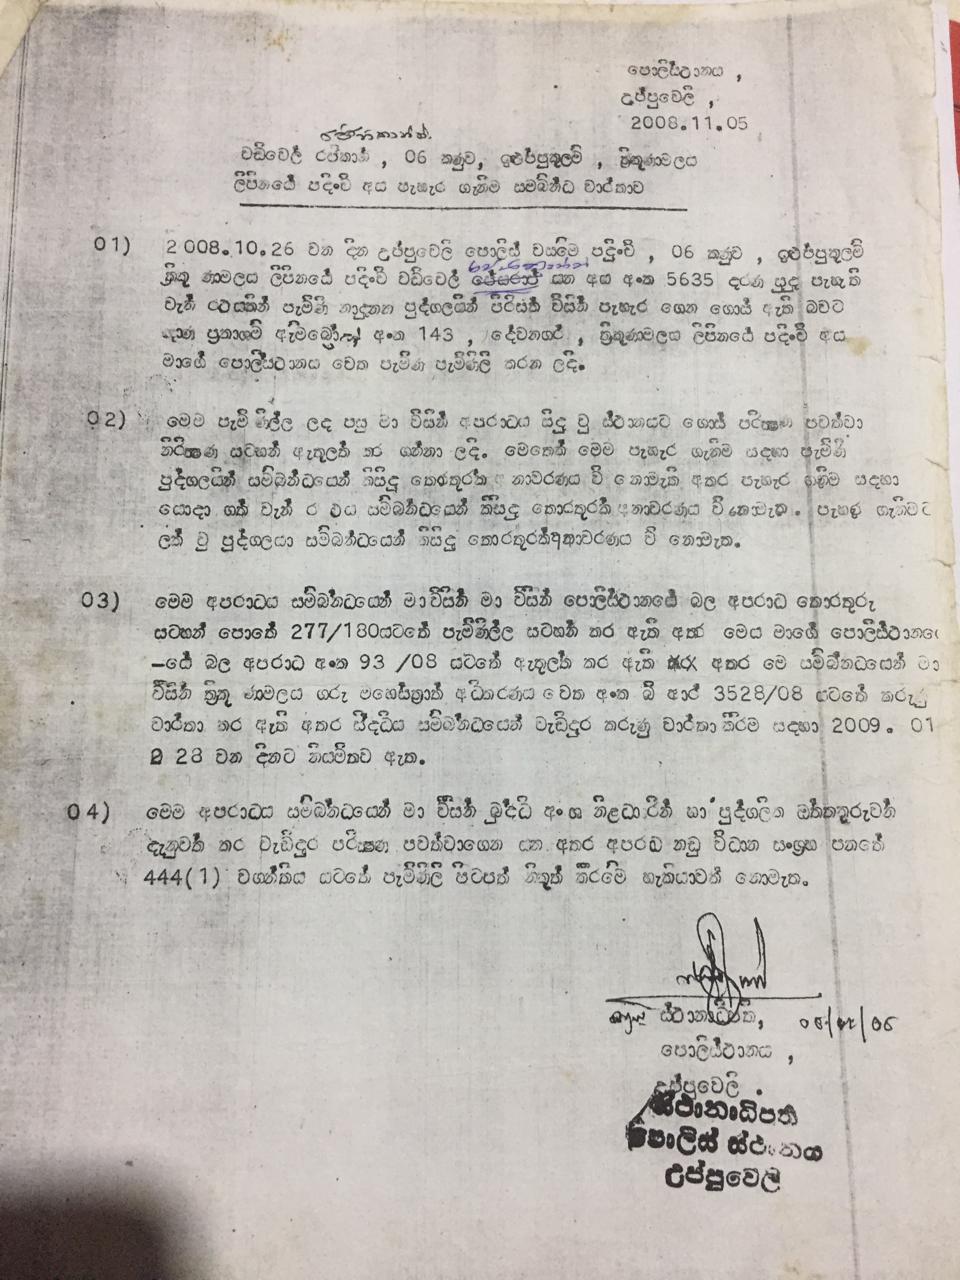 පොලිස්ථානය ,
උප්පුවෙලි ,
2008.11.05
වඩිවෙල් , 06 කණුව, ඉළුප්පුකුලම් , ත්‍රිකුණාමලය
ලිපිනයේ පදිංචි අය පැහැර ගැනීම සම්බන්ධ වාර්තාව
01) 2008.10.26 වන දින උප්පුවෙලි පොලිස් වසමේ පදිංචි , 06 කණුව , ඉළුප්පුකුලම්
ත්‍රිකුණාමලය ලිපිනයේ පදිංචි වඩිවෙල් යන අය අංක 5635 දරණ සුදු පැහැති
වෑන් රථයකින් පැමිණි නාදුනන පුද්ගලයින් පිරිසක් විසින් පැහැර ගෙන ගොස් ඇති බවට
අංක 143 , දේවනගර් , ත්‍රිකුණාමලය ලිපිනයේ පදිංචි අය
මාගේ පොලිස්ථානය වෙත පැමිණ පැමිණිලි කරන ලදි.
02) මෙම පැමිණිල්ල ලද පසු මා විසින් අපරාධය සිදු වු ස්ථානයට ගොස් පරික්ෂණ පවත්වා
නිරික්ෂණ සටහන් ඇතුලත් කර ගන්නා ලදි. මෙතෙක් මෙම පැහැර ගැනීම සදහා පැමිණි
පුද්ගලයින් සම්බන්ධයෙන් කිසිදු තොරතුරක් අනාවරණය වි නොමැති අතර පැහැර ගැනීම සදහා
යොදා ගත් වෑන් රථය සම්බන්ධයෙන් කිසිදු තොරතුරක් අනාවරණය වි නොමැත. පැහැර ගැනීමට
ලක් වු පුද්ගලයා සම්බන්ධයෙන් කිසිදු තොරතුරක් අනාවරණය වි නොමැත.
03) මෙම අපරාධය සම්බන්ධයෙන් මා විසින් මා විසින් පොලිස්ථානයේ බල අපරාධ තොරතුරු
සටහන් පොතේ 277/180යටතේ පැමිණිල්ල සටහන් කර ඇති අතර මෙය මාගේ පොලිස්ථානයේ
-යේ බල අපරාධ අංක 93 /08 යටතේ ඇතුලත් කර ඇති අතර මේ සම්බන්ධයෙන් මා
විසින් ත්‍රිකුණාමලය ගරු මහෙස්ත්‍රාත් අධිකරණය වෙත අංක බි ආර් 3528/08 යටතේ කරුණු
වාර්තා කර ඇති අතර සිද්ධිය සම්බන්ධයෙන් වැඩිදුර කරුණු වාර්තා කිරීම සදහා 2009. 01
28 වන දිනට නියමිතව ඇත.
04) මෙම අපරාධය සම්බන්ධයෙන් මා විසින් බුද්ධි අංශ නිළධාරීන් හා පුද්ගලික ඔත්තකරුවන්
දැනුවත් කර වැඩිදුර පරික්ෂණ පවත්වාගෙන යන අතර අපරාධ නඩු විධාන සංග්‍රහ පනතේ
444(1) වගන්තිය යටතේ පැමිණිලි පිටපත් නිකුත් කිරීමේ හැකියාවක් නොමැත.
ස්ථානාධිපති,
පොලිස්ථානය ,
උප්පුවෙලි .
ස්ථානාධිපති
පොලිස් ස්ථානය
උප්පුවෙලි